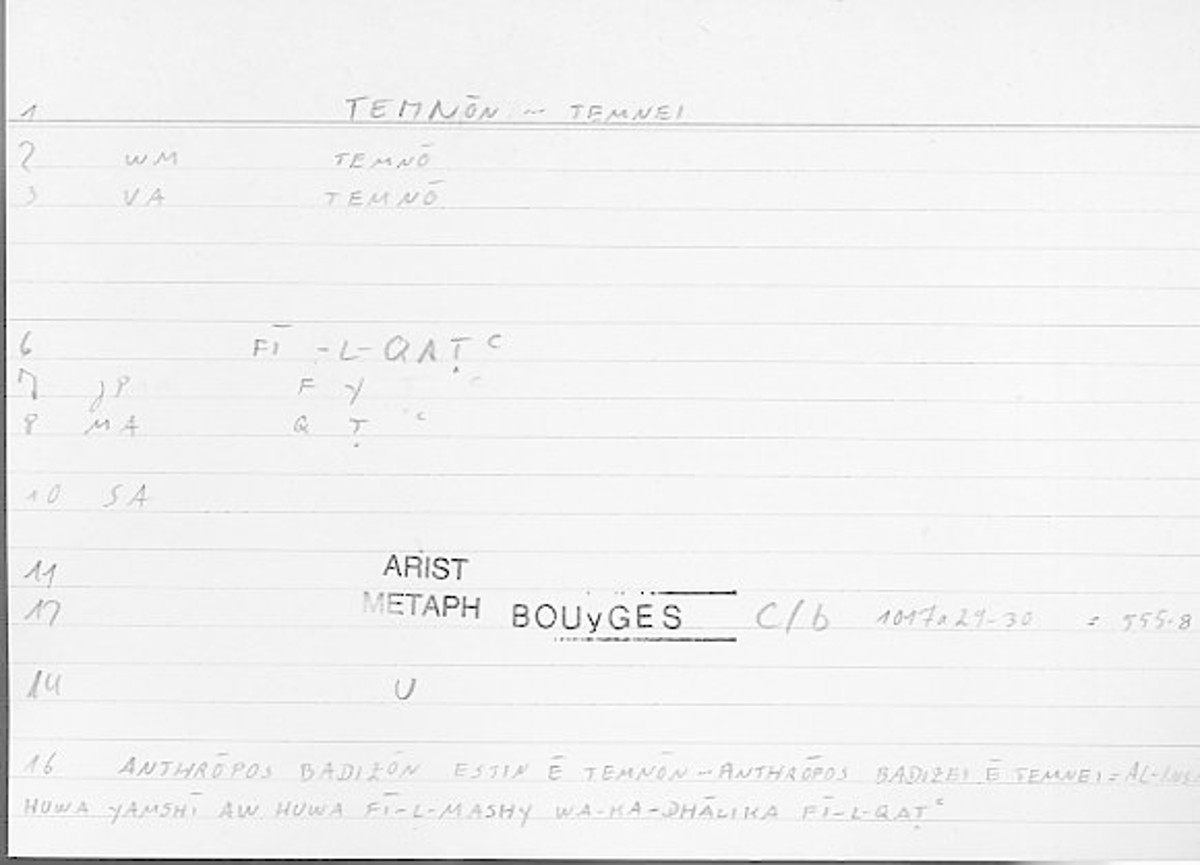 1 TEMNŌN ~ TEMNEI
2 WM TEMNŌ
3 VA TEMNŌ
6 FĪ -L-QAṬ ᶜ
7 JP F Y
8 MA Q Ṭ ᶜ
10 SA
11 ARIST
12 METAPH BOUyGES C/b 1017a29-30 = 555.8
14 U
16 ANTHRŌPOS BADIZŌN ESTIN Ē TEMNŌN ~ ANTHRŌPOS BADIZEI Ē TEMNEI = AL-INSĀ
HUWA YAMSHĪ AW HUWA FĪ-L-MASHY WA-KA-DHĀLIKA FĪ-L-QAṬᶜ